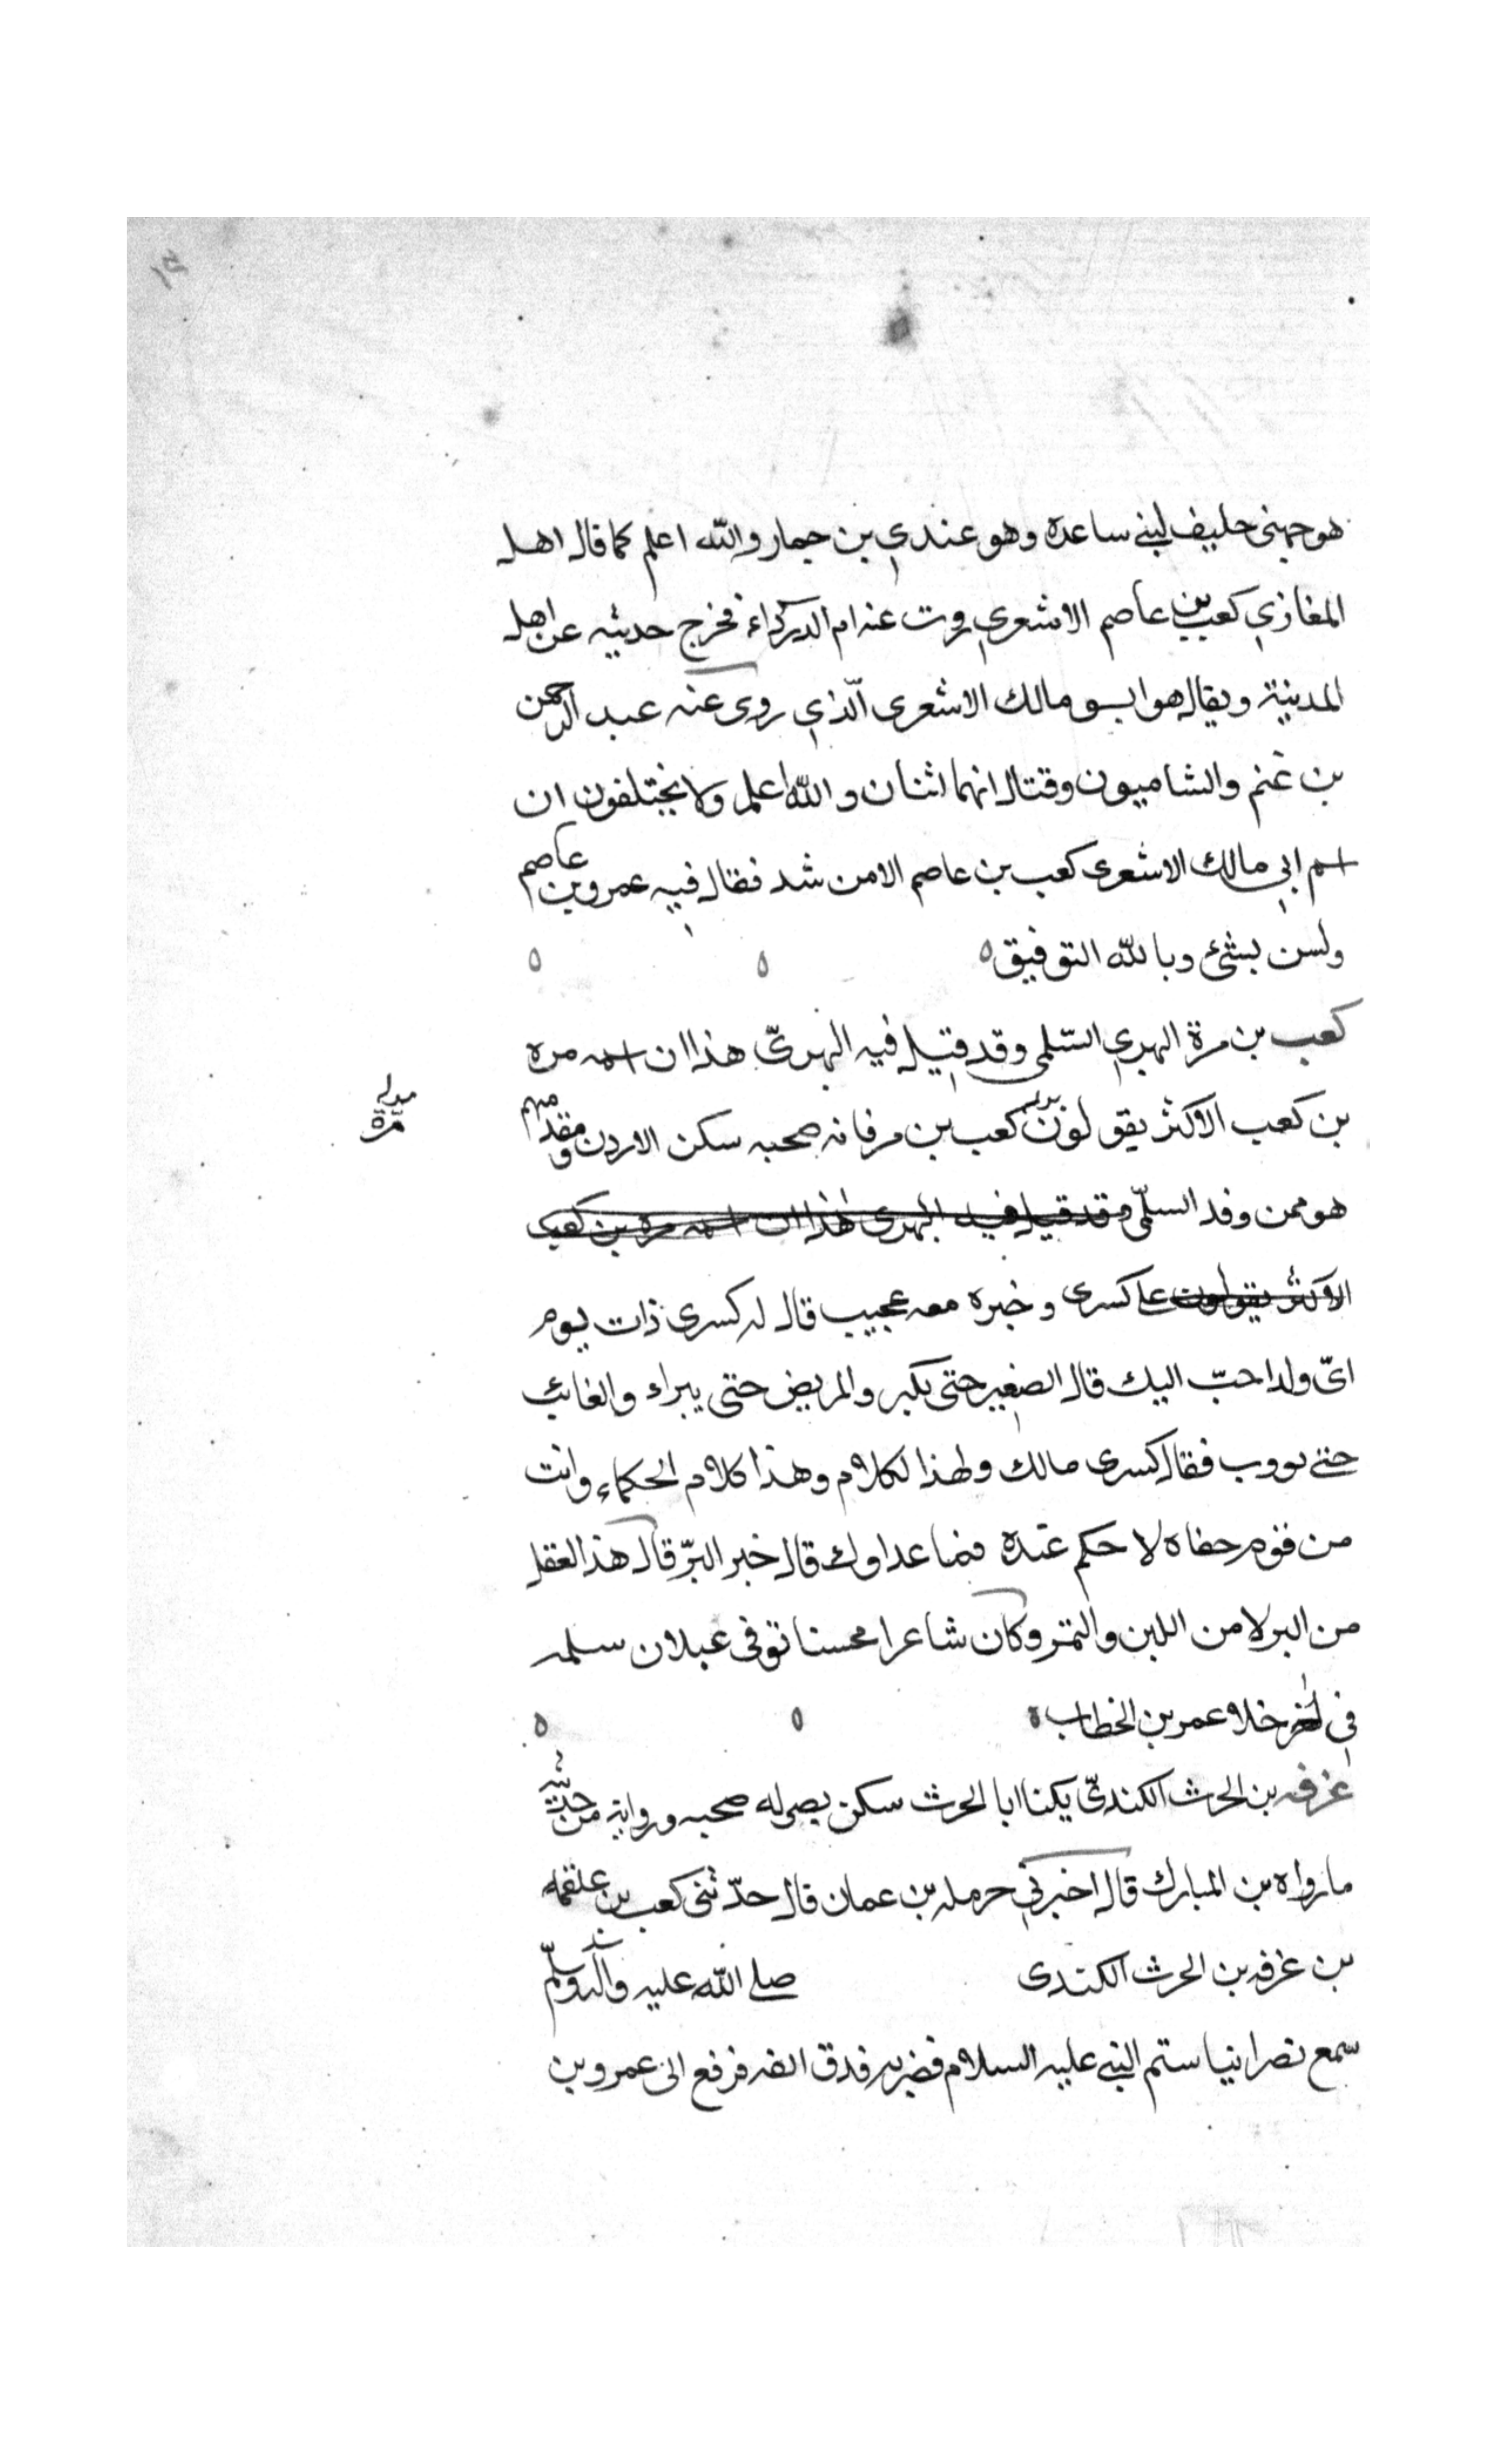 هو جهني حليف لبني ساعدة وهو عندي بن جمار والله اعلم كما قال اهل
المغازي كعب بن عاصم الاشعري روت عنه ام الدرداء فخرج حديثه عن اهل
المدينة ويقال هو ابو مالك الاشعري الذي روى عنه عبد الرحمن
بن غنم والشاميون وقتال انهما اثنان والله اعلم ولا يختلفون ان
اسم ابي مالك الاشعرى كعب بن عاصم الا من شد فقال فيه عمرو بن عاصم
ولسن بشئ وبالله التوفيق ه ه ه
كعب بن مرة البهري السّلمي وقد قيل فيه البهريّ هذا ان اسمه مره
بن كعب الاكثر يقولون كعب بن مرفانه صحبه سكن الاردن و مقدمهم
مرة
هو ممن وفد السلّمى وقد قيل فيه البهرى هذا ان اسمه مره بن كعب
الاكثر يقولون على كسرى وخبره معه عجيب قال له كسرى ذات يوم
اىّ ولد احبّ اليك قال الصغير حتى يكبر والمريض حتى يبراء والغائب
حتى يووب فقال كسرى مالك ولهذا لكلام وهذا كلام الحكماء وانت
من قوم حفاه لا حكم عنده فما عداوك قال خبر البرّ قال هذا العقل
من البر لا من اللبن والتمر وكان شاعرا محسنا توفى عيلان سلمه
في اخر خلا عمر بن الخطاب ه ه ه
غرفه بن الحرث الكنديّ يكنا ابا الحرث سكن بصر له صحبه ورواية من حديثه
ما رواه بن المبارك قال اخبرني حرمله بن عمان قال حدّثنى كعب بن علقمه
بن غرفه بن الحرث الكندى صلى الله عليه وآله وسلّم
سمع نصرانيا ستم النبي عليه السلام فضربه فدق انفه فرفع الى عمرو بن